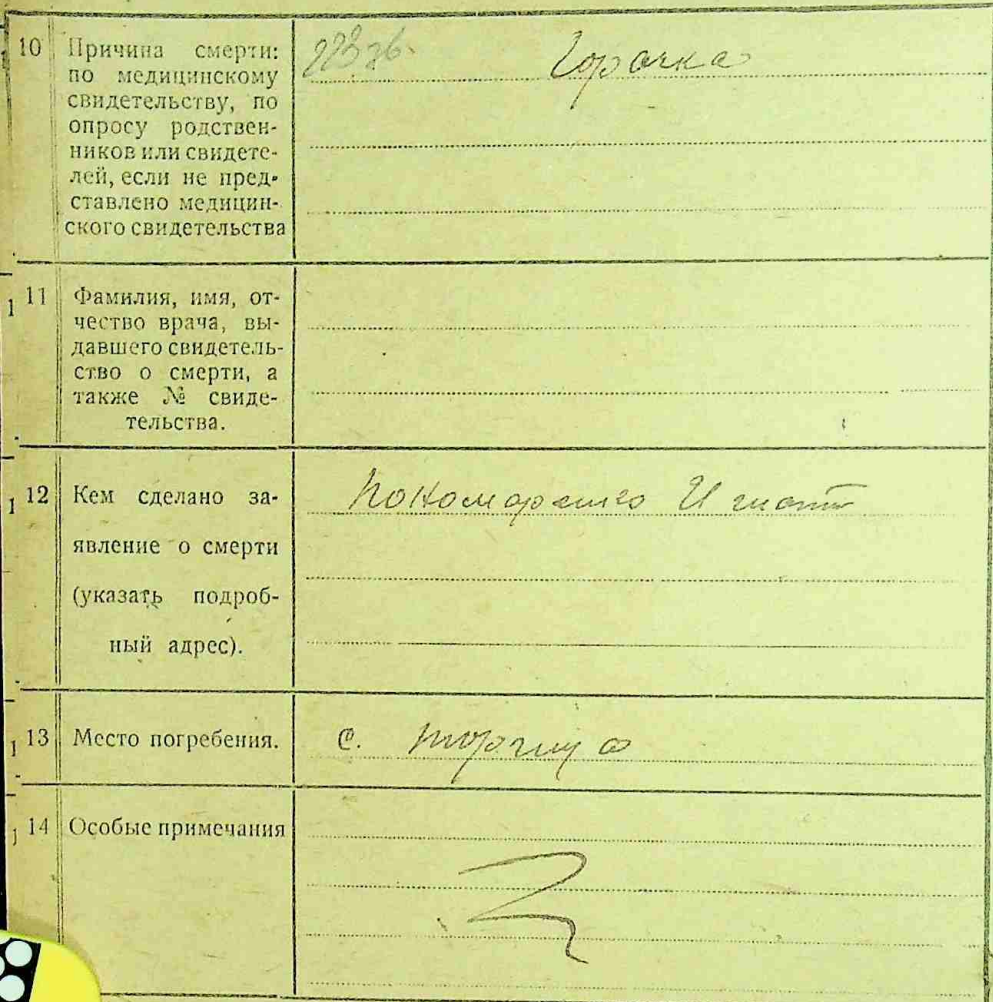 10 Причина смерти:
по медицинскому
свидетельству, по
опросу родствен-
ников или свидете-
лей, если не пред-
ставлено медицин-
ского свидетельства
Горачка
1 11 Фамилия, имя, от-
чество врача, вы-
давшего свидетель-
ство о смерти, а
также № свиде-
тельства.
1 12 Кем сделано за-
явление о смерти
(указать подроб-
ный адрес).
Пономаренко Игнат
1 13 Место погребения.
с.
1 14 Особые примечания